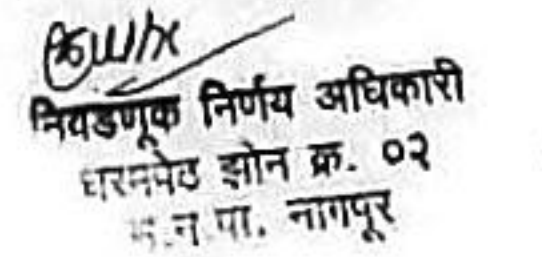 निवडणूक निर्णय अधिकारी
धरमपेठ झोन क्र. ०२
म.न.पा. नागपूर